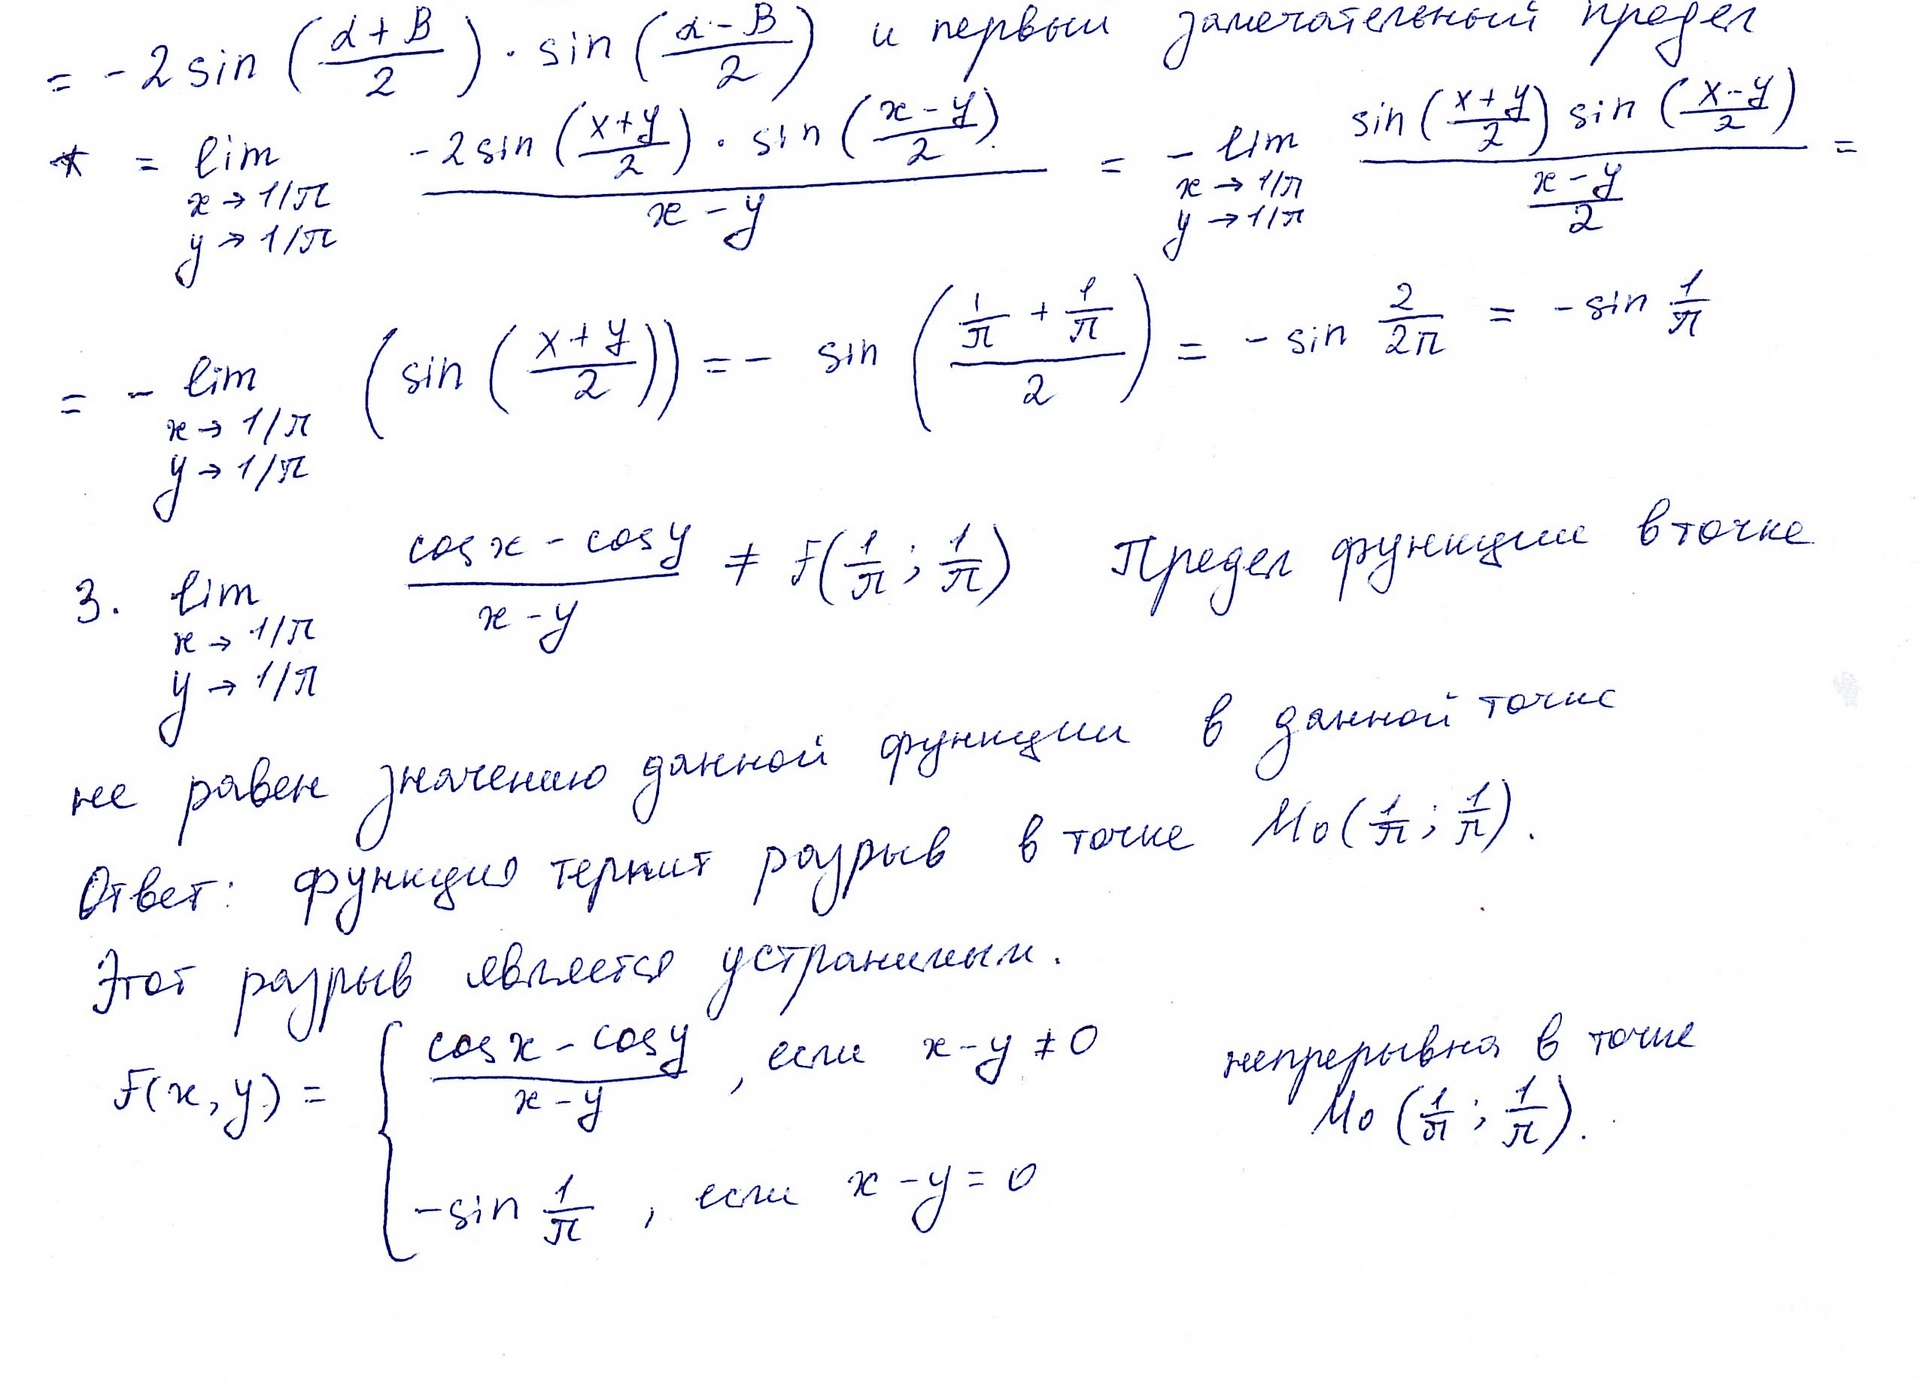 = -2 sin ((α+β)/2) · sin ((α-β)/2) и первый замечательный предел
* = lim x→1/π y→1/π (-2 sin ((x+y)/2) · sin ((x-y)/2))/(x-y) = - lim x→1/π y→1/π (sin ((x+y)/2) sin ((x-y)/2))/((x-y)/2) =
= - lim x→1/π y→1/π (sin ((x+y)/2)) = - sin ((1/π + 1/π)/2) = - sin 2/2π = - sin 1/π
3. lim x→1/π y→1/π (cos x - cos y)/(x-y) ≠ F(1/π; 1/π) Предел функции в точке
не равен значению данной функции в данной точке
Ответ: функция терпит разрыв в точке M0(1/π; 1/π).
Этот разрыв является устранимым.
F(x, y) = { (cos x - cos y)/(x-y), если x-y ≠ 0 непрерывна в точке
M0 (1/π; 1/π).
-sin 1/π, если x-y = 0